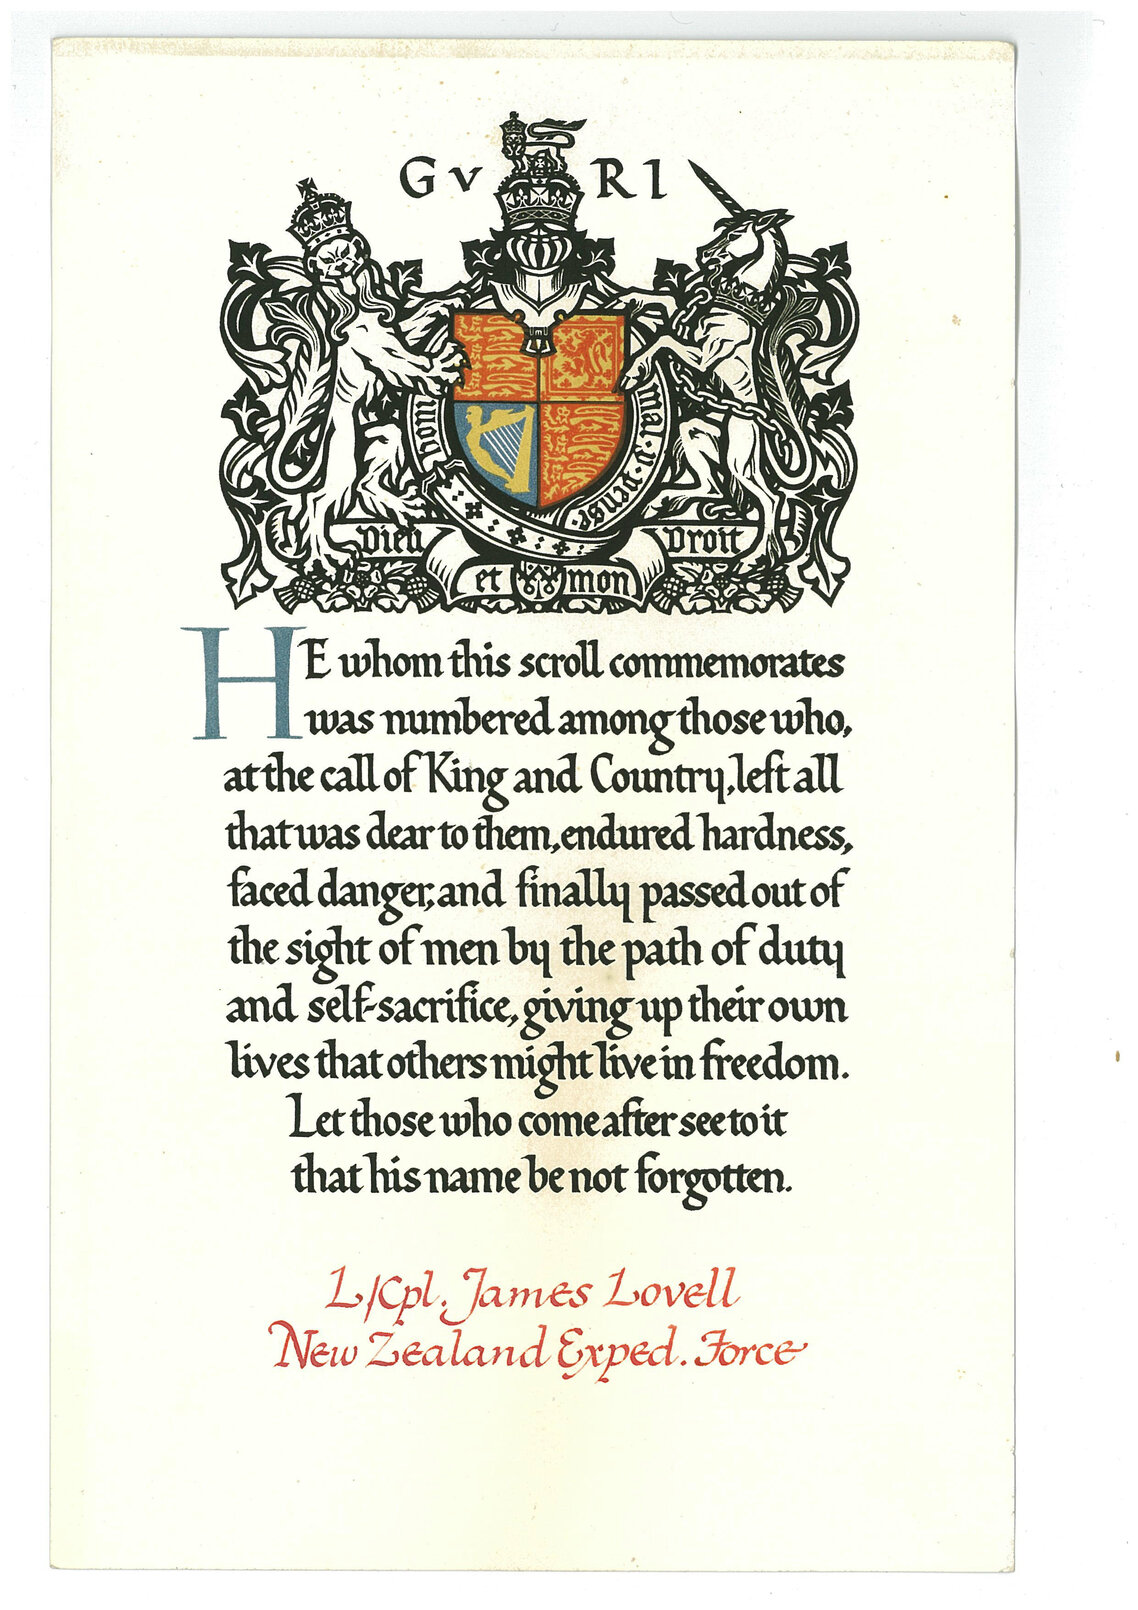 GV RI
honi mal·y·pense·
Dieu et mon Droit
HE whom this scroll commemorates
was numbered among those who,
at the call of King and Country, left all
that was dear to them, endured hardness,
faced danger, and finally passed out of
the sight of men by the path of duty
and self-sacrifice, giving up their own
lives that others might live in freedom.
Let those who come after see to it
that his name be not forgotten.
L/Cpl. James Lovell
New Zealand Exped. Force